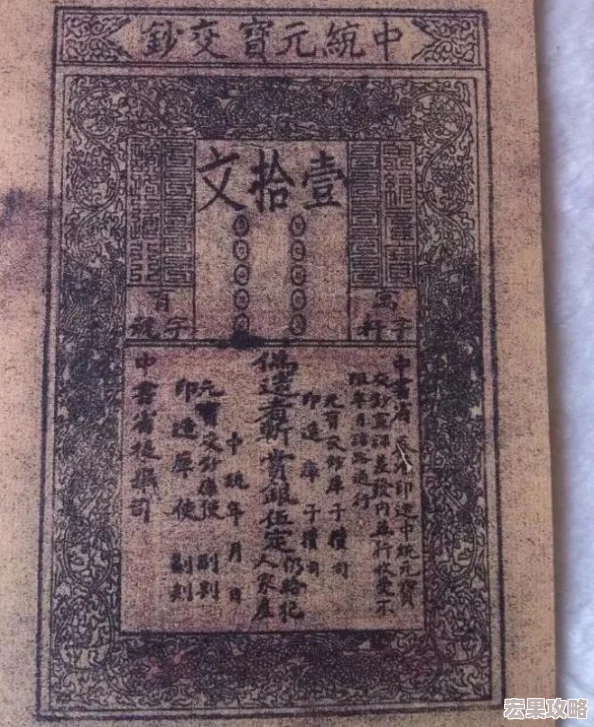 中統元寶交鈔
壹拾文
字號
中書省奏准印造中統元寶
交鈔宣課差發內並行收受不
限年月諸路通行
元寶交鈔庫子攢司
印造庫子攢司
偽造者斬賞銀伍定仍給犯
人家產
中統年月日
元寶交鈔庫使副判
印造庫使副判
中書省提舉司
宏果攻略